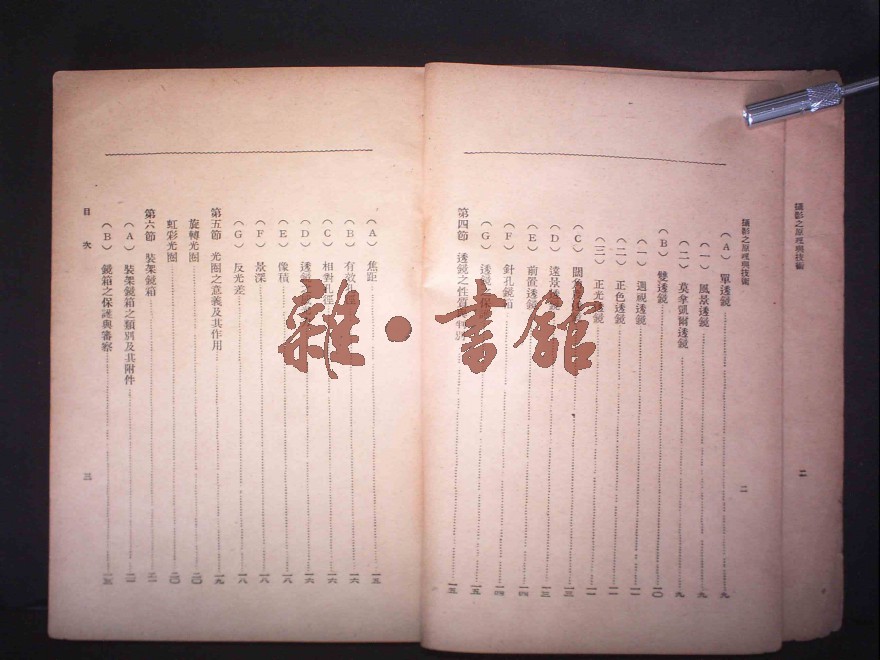 攝影之原理與技術
二
攝影之原理與技術
二
(A) 單透鏡 九
(一) 風景透鏡 九
(二) 莫拿凱爾透鏡 九
(B) 雙透鏡 一〇
(一) 週視透鏡 一一
(二) 正色透鏡 一一
(三) 正光透鏡 一一
(C) 闊角 一三
(D) 遠景透鏡 一三
(E) 前置透鏡 一四
(F) 針孔鏡箱 一四
(G) 透鏡之保護 一五
第四節 透鏡之性質 判別 一五
(A) 焦距 一五
(B) 有效 一六
(C) 相對孔徑 一六
(D) 透鏡 一六
(E) 像積 一八
(F) 景深 一八
(G) 反光差 一八
第五節 光圈之意義及其作用 一九
旋轉光圈 二〇
虹彩光圈 二〇
第六節 裝架鏡箱 二一
(A) 裝架鏡箱之類別及其附件 二一
(B) 鏡箱之保護與審察
目次
三
雜·書館